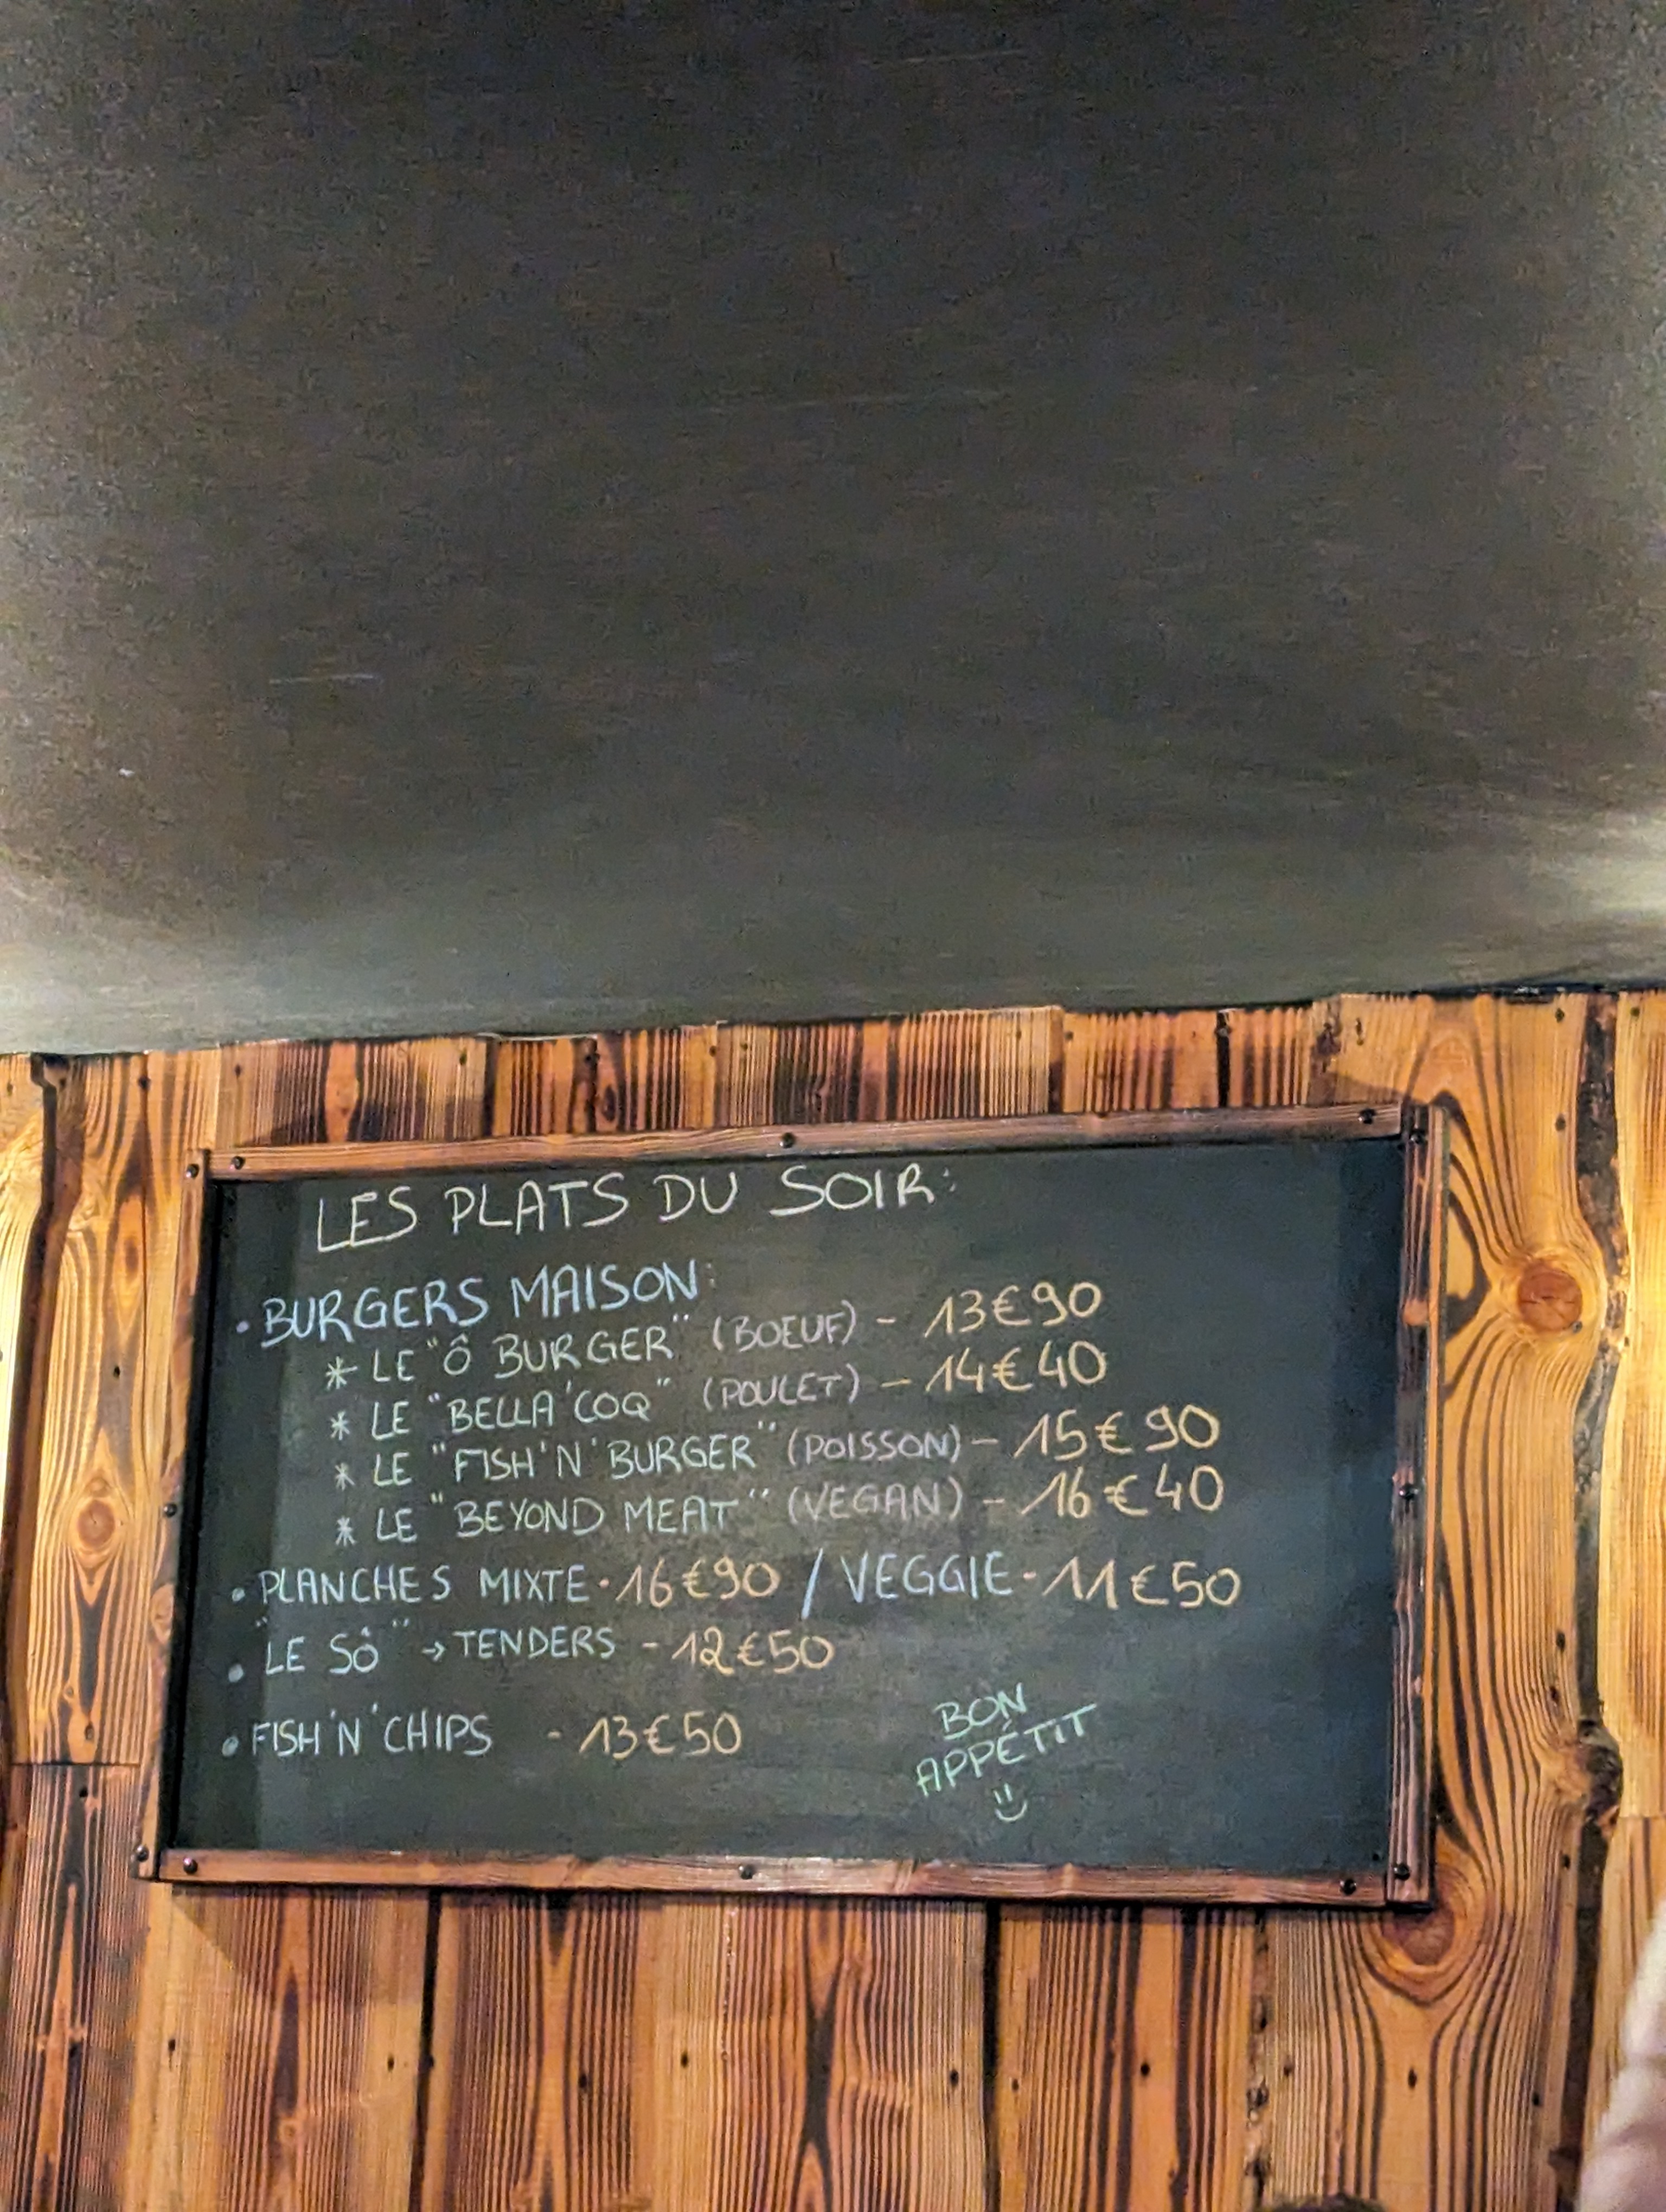 LES PLATS DU SOIR:
• BURGERS MAISON:
* LE "Ô BURGER" (BOEUF) - 13€90
* LE "BELLA'COQ" (POULET) - 14€40
* LE "FISH'N'BURGER" (POISSON) - 15€90
* LE "BEYOND MEAT" (VEGAN) - 16€40
• PLANCHES MIXTE - 16€90 / VEGGIE - 11€50
• "LE SÔ" → TENDERS - 12€50
• FISH'N'CHIPS - 13€50
BON
APPÉTIT